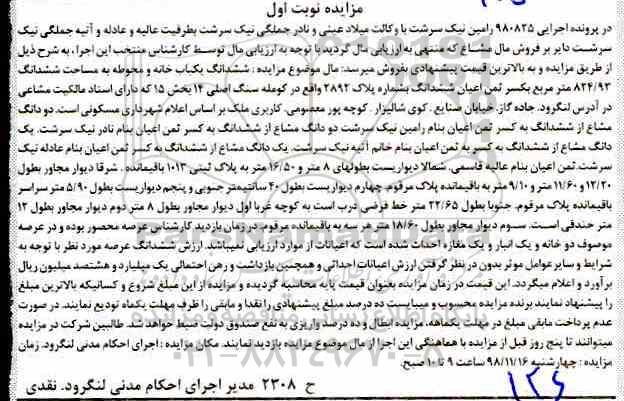 مزایده نوبت اول
در پرونده اجرایی ۹۸۰۸۳۵ رامین نیک سرشت با وکالت میلاد عینی و نادر جملگی نیک سرشت بطرفیت عالیه و عادله و آتیه جملگی نیک
سرشت دایر بر فروش مال مشاع که منتهی به ارزیابی مال گردید با توجه به ارزیابی مال توسط کارشناس منتخب این اجرا، به شرح ذیل
از طریق مزایده و به بالاترین قیمت پیشنهادی بفروش میرسد: مال موضوع مزایده : ششدانگ یکباب خانه و محوطه به مساحت ششدانگ
۸۲۴/۹۳ متر مربع بکسر ثمن اعیان ششدانگ بشماره پلاک ۲۸۹۲ واقع در کومله سنگ اصلی ۱۴ بخش ۱۵ که دارای اسناد مالکیت مشاعی
در آدرس لنگرود، جاده گاز، خیابان صنایع ، کوی شالیزار ، کوچه پور معصومی، کاربری ملک بر اساس اعلام شهرداری مسکونی است. دو دانگ
مشاع از ششدانگ به کسر ثمن اعیان بنام رامین نیک سرشت دو دانگ مشاع از ششدانگ به کسر ثمن اعیان بنام نادر نیک سرشت، یک
دانگ مشاع از ششدانگ به کسر به ثمن اعیان بنام خانم آتیه نیک سرشت، یک دانگ مشاع از ششدانگ به کسر ثمن اعیان بنام عادله نیک
سرشت، ثمن اعیان بنام عالیه قاسمی، شمالا دیواریست بطولهای ۸ متر و ۱۶/۵۰ متر به پلاک ثبتی ۱۰۱۳ باقیمانده . شرقا دیوار مجاور بطول
۱۲/۲۰ و ۱۱/۶۰ متر و ۹/۱۰ متر به باقیمانده پلاک مرقوم، چهارم دیواریست بطول ۴۰ سانتیمتر جنوبی و پنجم دیواریست بطول ۵/۹۰ متر سراسر
باقیمانده پلاک مرقوم، جنوبا بطول ۲۲/۶۵ متر خط فرضی درب است به کوچه غربا اول دیوار مجاور بطول ۸ متر دوم دیوار مجاور بطول ۱۲
متر خندقی است، سوم دیوار مجاور بطول ۱۸/۶۰ متر به سه به باقیمانده مرقوم در زمان بازدید کارشناس عرصه محصور بوده و در عرصه
موصوف دو خانه و یک انبار و یک مغازه احداث شده است که اعیانات از موارد ارزیابی نمیباشد. ارزش ششدانگ عرصه مورد نظر با توجه به
شرایط و سایر عوامل موثر بدون در نظر گرفتن ارزش اعیانات احداثی و همچنین بازداشت و رهن احتمالی یک میلیارد و هشتصد میلیون ریال
برآورد و اعلام میگردد. این قیمت در زمان مزایده بعنوان قیمت پایه محاسبه گردیده و مزایده از این مبلغ شروع و کسانیکه بالاترین مبلغ
را پیشنهاد نمایند برنده مزایده محسوب و میبایست ده درصد مبلغ پیشنهادی را نقدا و مابقی را ظرف مهلت یکماه تودیع نمایند. در صورت
عدم پرداخت مابقی مبلغ در مهلت یکماهه، مزایده ابطال و ده درصد واریزی به نفع صندوق دولت ضبط خواهد شد. طالبین شرکت در مزایده
میتوانند تا پنج روز قبل از مزایده با هماهنگی این اجرا از مال موضوع مزایده بازدید نمایند. مکان مزایده : اجرای احکام مدنی لنگرود. زمان
مزایده : چهارشنبه ۹۸/۱۱/۱۶ ساعت ۹ تا ۱۰ صبح.
ح ۲۳۰۸ مدیر اجرای احکام مدنی لنگرود. نقدی
۱۲۶
پایگاه اطلاع رسانی مناقصه و مزایده
۰۲۱-۸۸۳۴۹۶۷۰-۸